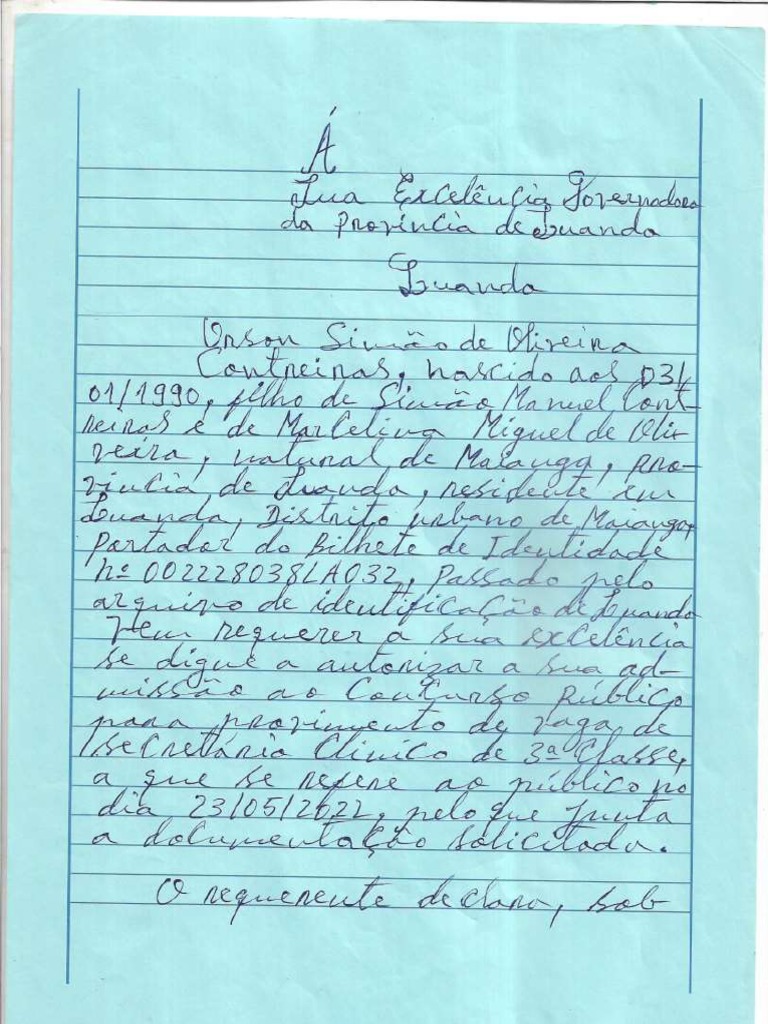 Á
Sua Excelência Governadora
da Província de Luanda
Luanda
Orson Simão de Oliveira
Contreiras, nascido aos 03/
01/1990, filho de Simão Manuel Cont-
reiras e de Marcelina Miguel de Oli-
veira, natural de Maianga, pro-
víncia de Luanda, residente em
Luanda, Distrito urbano de Maianga,
Portador do Bilhete de Identidade
nº 002228038LA032, Passado pelo
arquivo de identificação de Luanda
Vem requerer a sua excelência
se digne a autorizar a sua ad-
missão ao Concurso Público
para provimento de vaga de
secretário Clínico de 3ª Classe,
a que se refere ao público no
dia 23/05/2022, pelo que junta
a documentação solicitada.
O requerente declara, sob